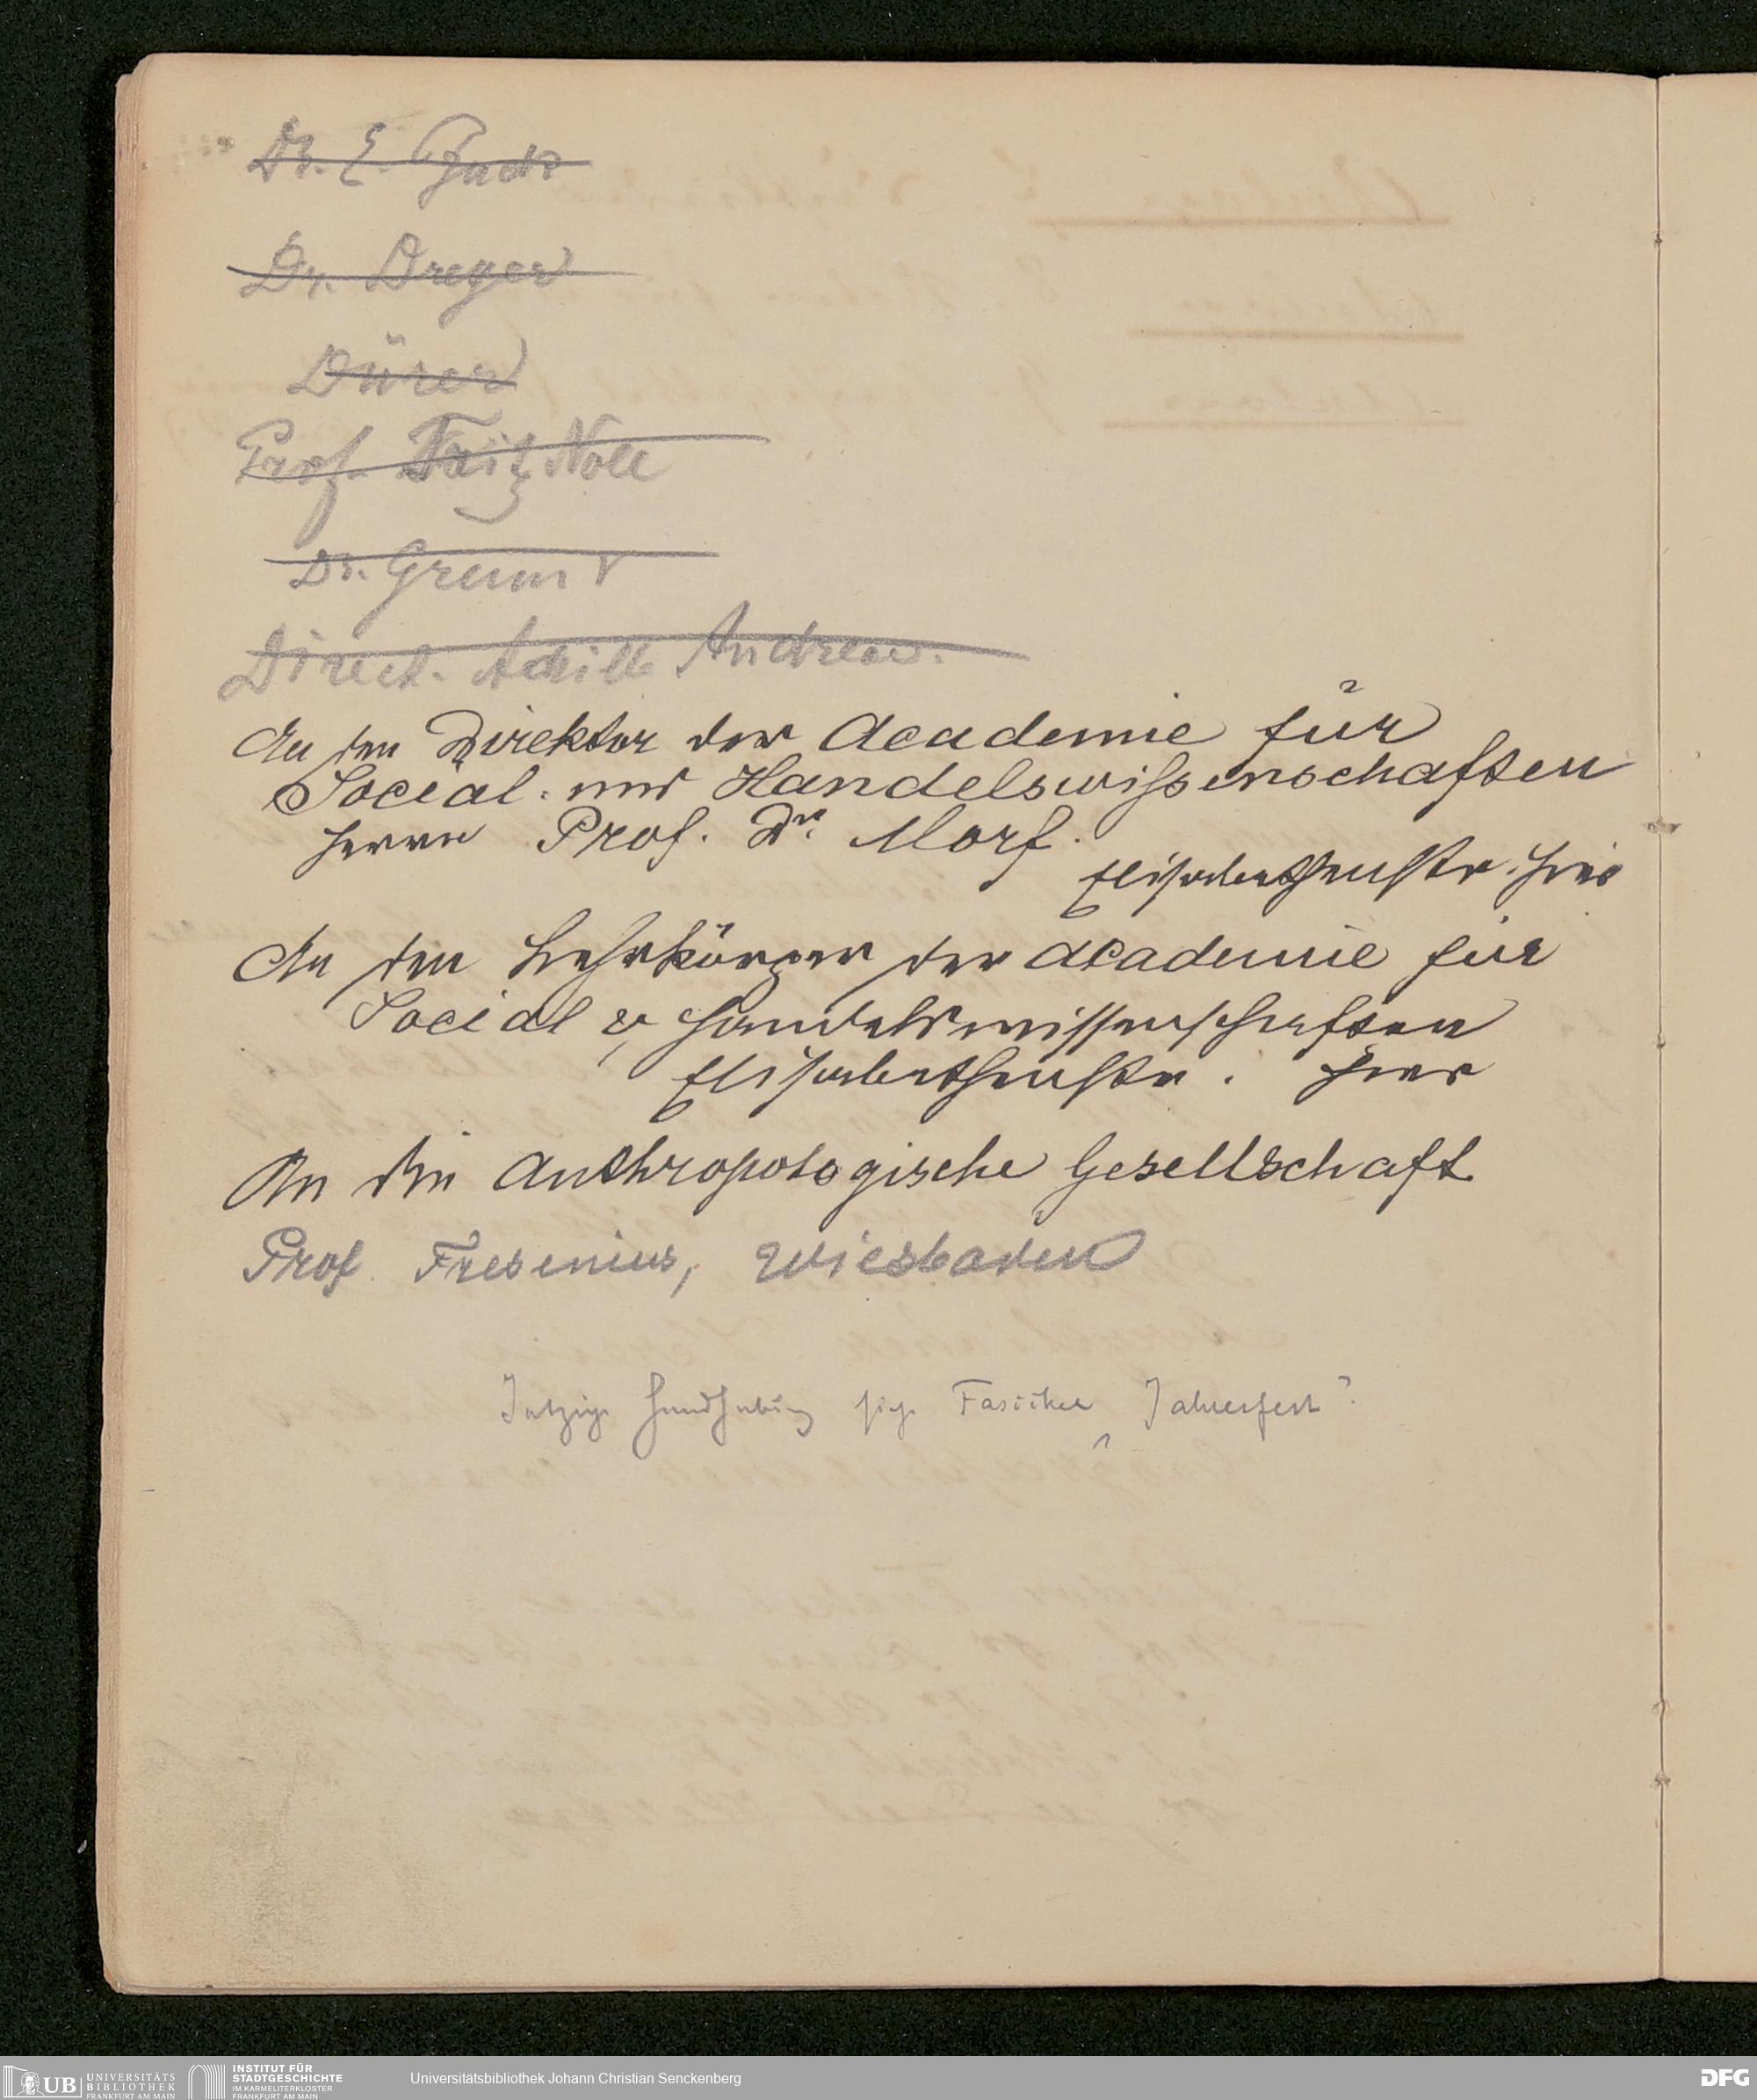 Dr. E.
Dr. Dreyer
Dürer
Prof. Fritz Noll
Dr.
Direct. Achille Andreae.
An den Direktor der Academie für
Social- und Handelswißenschaften
Herrn Prof. Dr. Morf.
Elisabethenstr. hier
An den Lehrkörper der Academie für
Social & Handelswissenschaften
Elisabethenstr. hier
An die Anthropologische Gesellschaft
Prof. Fresenius, Wiesbaden
Jetzige Handhabung siehe Fascikel „Jahresfest"
UB UNIVERSITÄTS
BIBLIOTHEK
FRANKFURT AM MAIN
INSTITUT FÜR
STADTGESCHICHTE
IM KARMELITERKLOSTER
FRANKFURT AM MAIN
Universitätsbibliothek Johann Christian Senckenberg
DFG